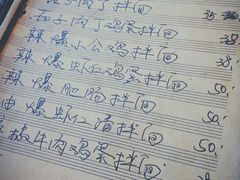 茄子肉丁拌面 35
茄子肉丁鸡蛋拌面 38
辣爆小公鸡拌面 38.
辣爆虾仁鸡蛋拌面 50.
辣爆肥肠拌面 50.
油爆虾仁渣拌面 50.
椒牛肉鸡蛋拌面